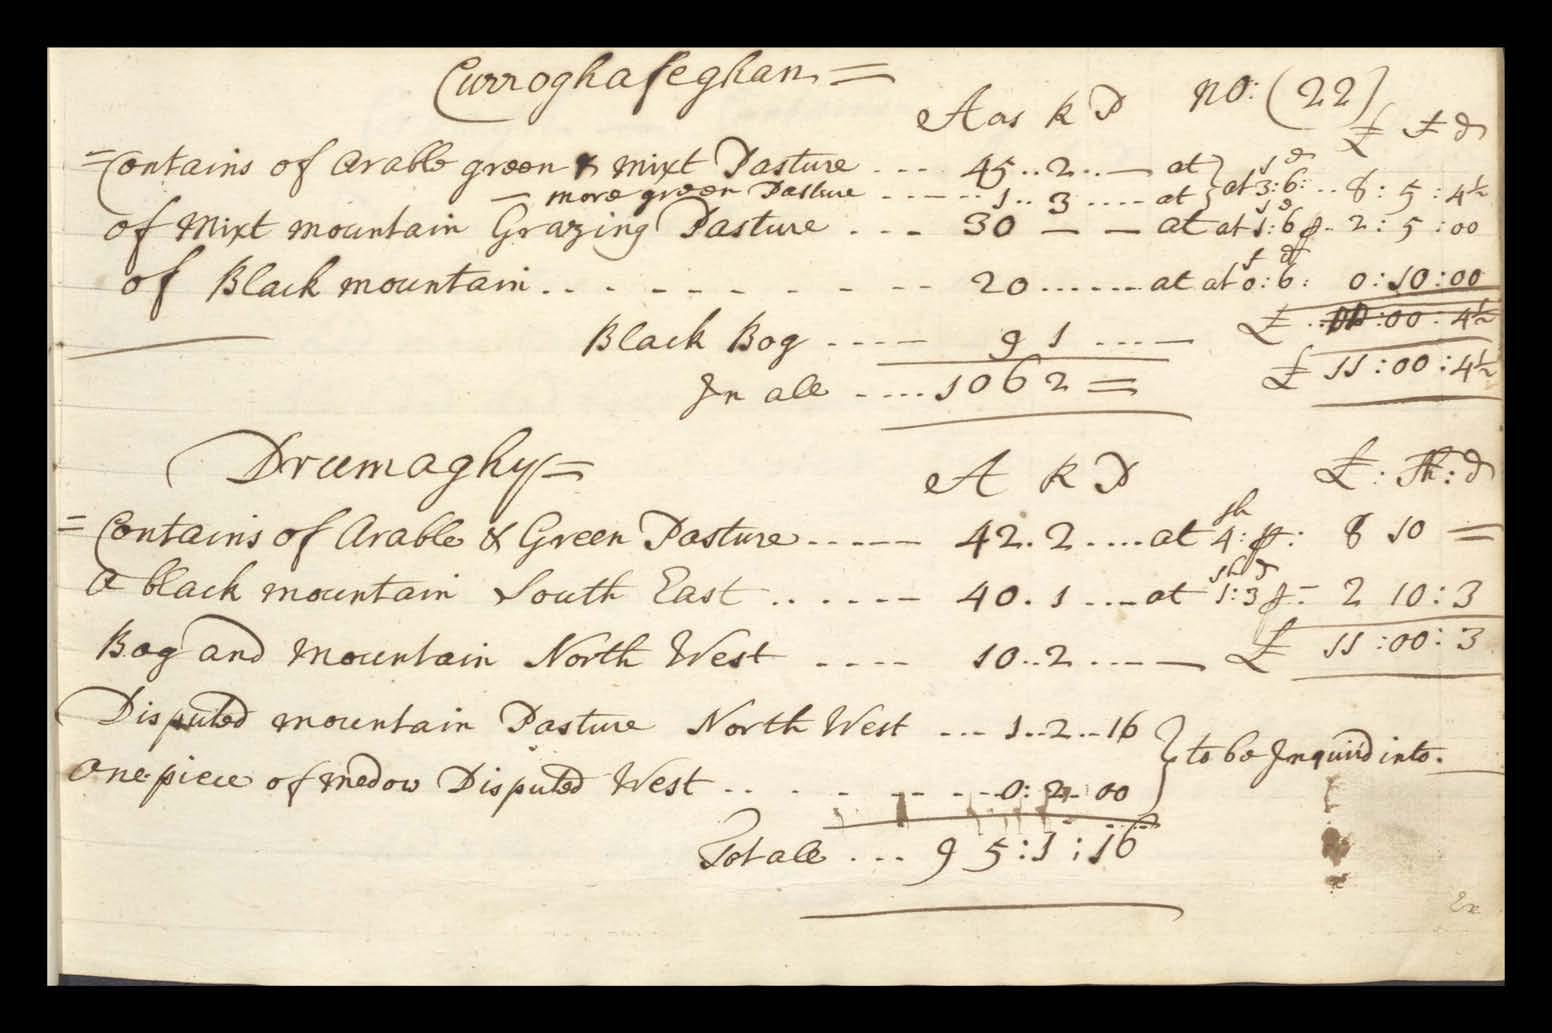 Curroghafeghan =
Acrs R P no: (22)
£ s d
= Contains of Arable green & mixt Pasture .... 45..2..— at } s d
— more green Pasture ...—.. 1..3....— at } at 3:6: ... 8:5:4½
of Mixt mountain Grazing Pasture ... 30 — — at at 1:6 p. 2:5:00
of Black mountain.......... 20......at at 0:6: 0:10:00
£ ..:00:4½
Black Bog ----- 9 1 ...—
£ 11:00:4½
In all ..... 106 2 =
Drumaghy =
A R P £: Sh: d
= Contains of Arable & Green Pasture ...... 42.2....at 4 sh: p: 8 10 =
A black mountain South East ...... 40.1 ...at 1:3 sh d p: 2 10:3
£ 11:00:3
Bog and Mountain North West .... 10..2....—
Disputed mountain Pasture North West ... 1..2..16 }
to be Inquird into.
One piece of medow Disputed West .......... 0:2..00
Totall ... 95:1:16
Ex